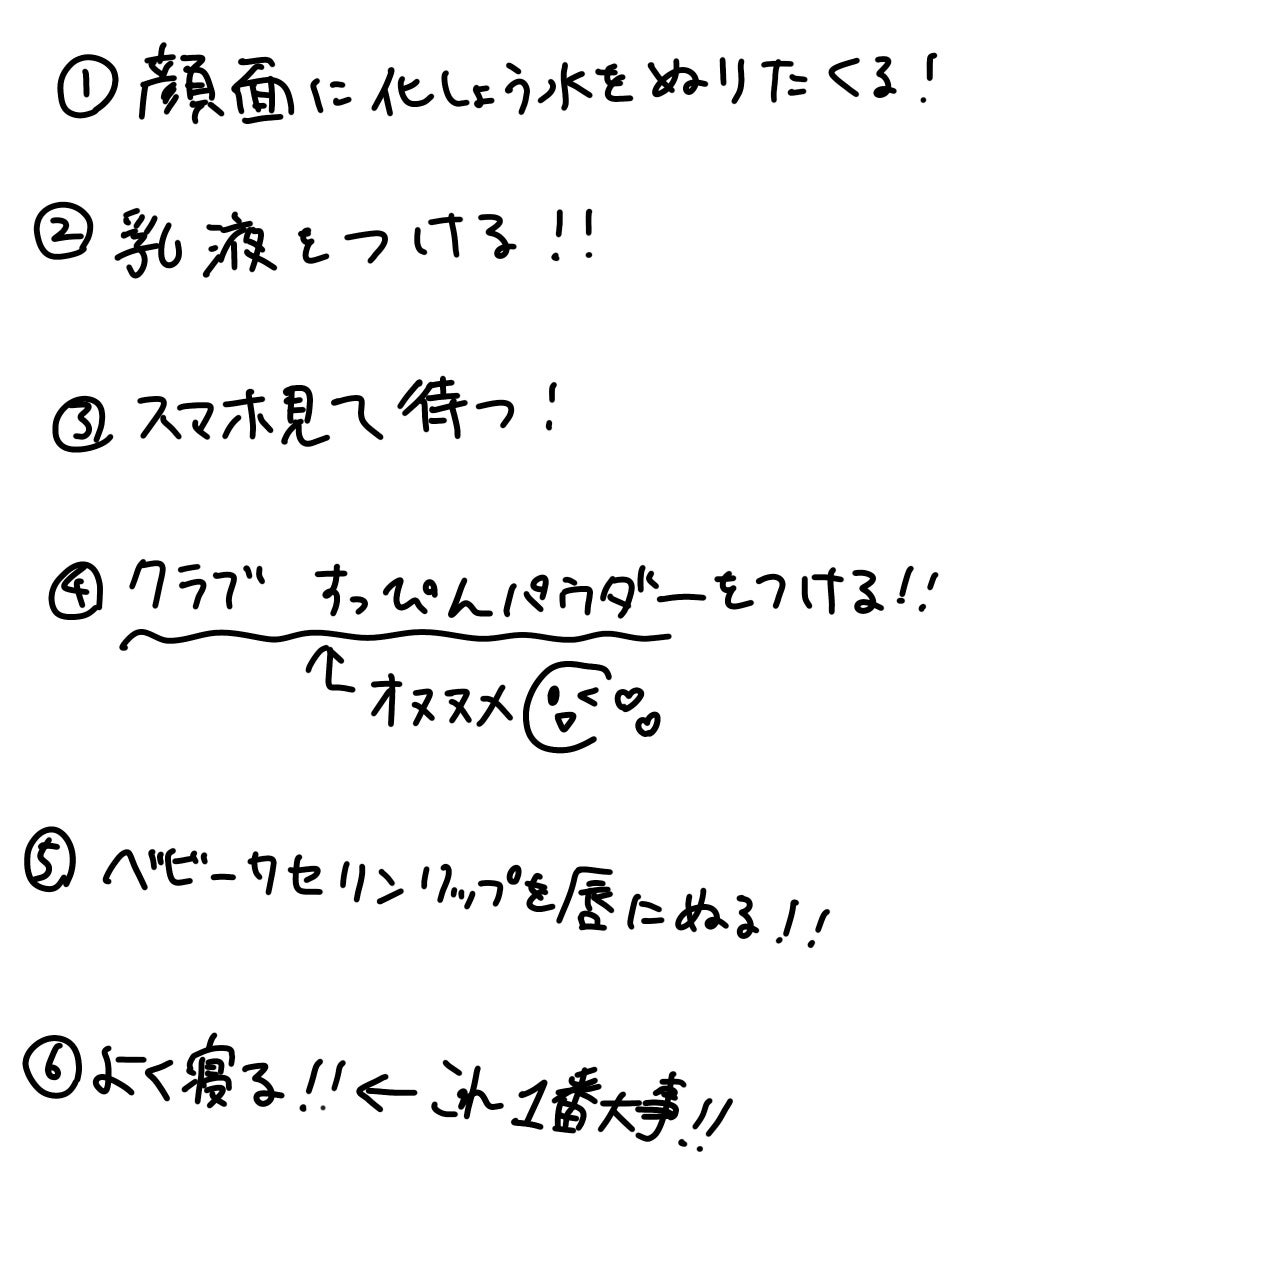 ① 顔面に化しょう水をぬりたくる!
② 乳液をつける!!
③ スマホ見て待つ!
④ クラブ すっぴんパウダーをつける!!
↑オススメ
⑤ ベビーワセリンリップを唇にぬる!!
⑥ よく寝る!!←これ1番大事!!